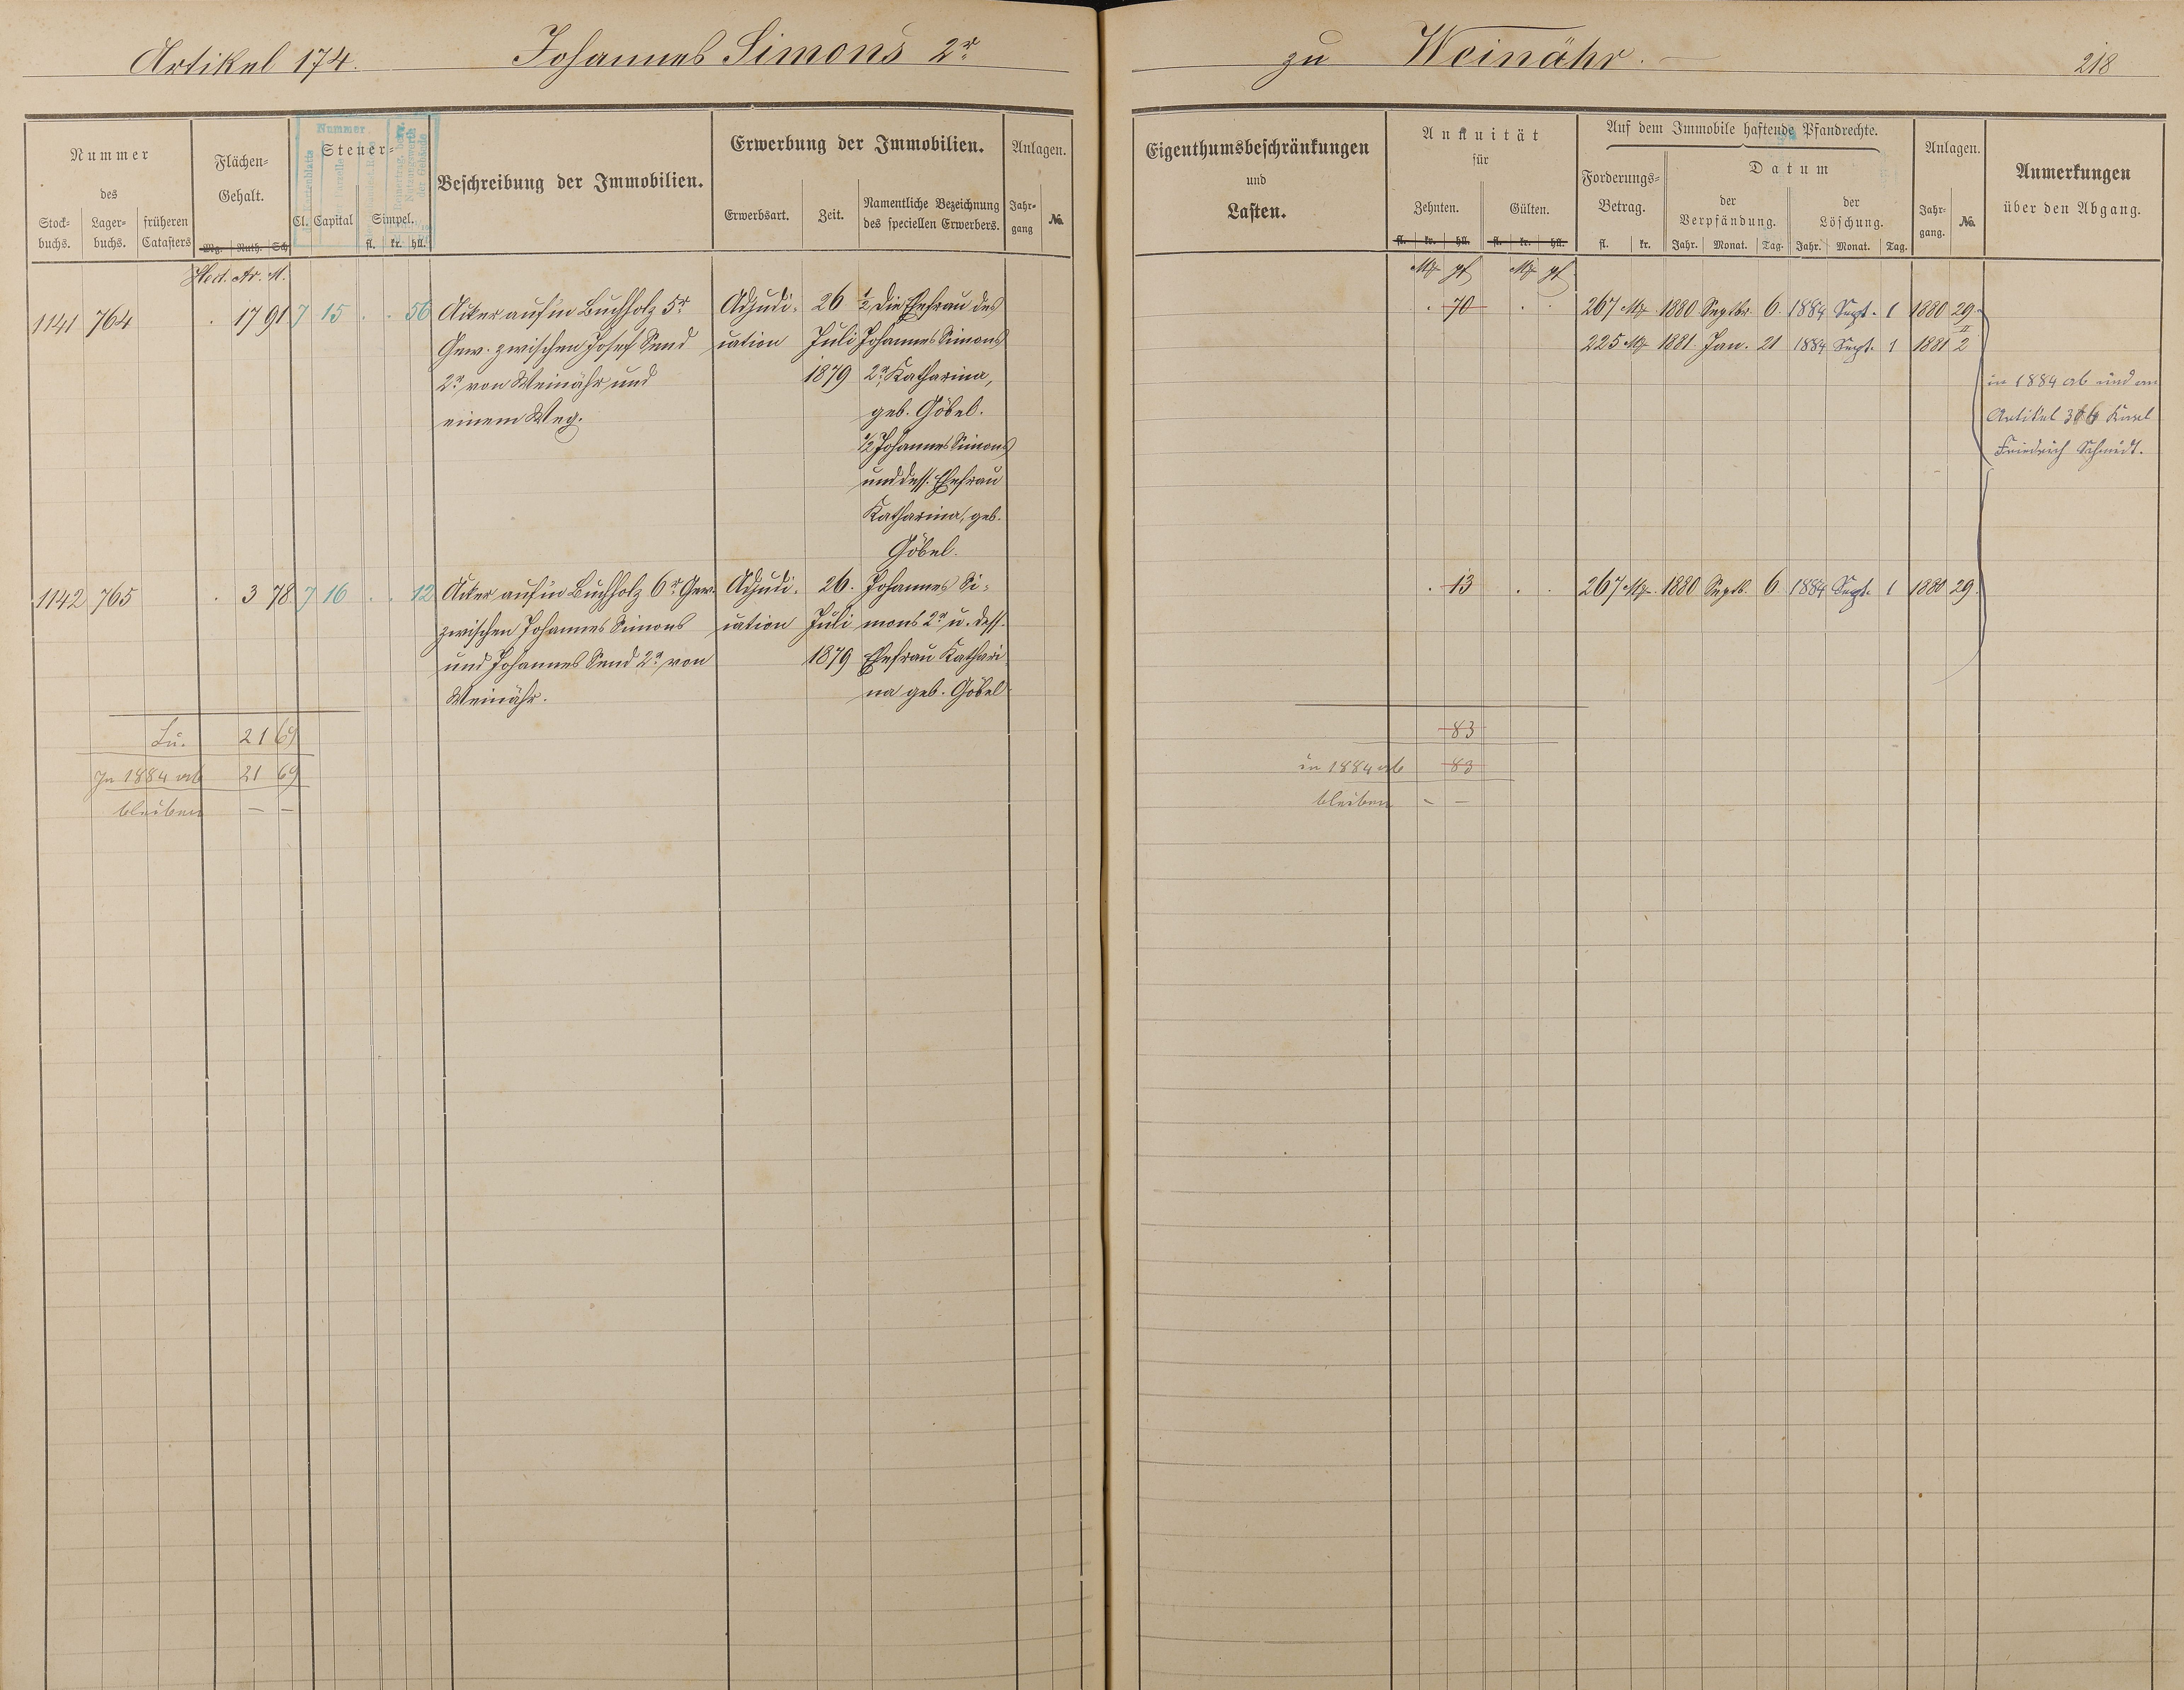 Artikel 174. Johannes Simons 2r zu Weinähr. 218
Nummer
des
Stock-
buchs.
Lager-
buchs.
früheren
Catasters
Flächen-
Gehalt.
Mg. Ruth. Sch
Nummer
Steuer-
Cl. Capital Simpel.
fl. kr. hll.
Beschreibung der Immobilien.
Erwerbung der Immobilien.
Erwerbsart. Zeit.
Namentliche Bezeichnung
des speciellen Erwerbers.
Anlagen.
Jahr-
gang
No.
Eigenthumsbeschränkungen
und
Lasten.
Annuität
für
Zehnten. Gülten.
fl. kr. hll. fl. kr. hll.
Auf dem Immobile haftende Pfandrechte.
Forderungs-
Betrag.
fl. kr.
Datum
der
Verpfändung.
Jahr. Monat. Tag.
der
Löschung.
Jahr. Monat. Tag.
Anlagen.
Jahr-
gang.
No.
Anmerkungen
über den Abgang.
Hect. Ar. M.
Mk pf Mk pf
1141 764 . 17 91 7 15 . . 56
Acker auf'm Buchholz 5r
Gew. zwischen Josef Send
2r von Weinähr und
einem Weg.
Adjudi-
cation
26
Juli
1879
1/2 die Ehefrau des
Johannes Simons
2r, Katharina,
geb. Göbel.
1/2 Johannes Simons
und dess. Ehefrau
Katharina, geb.
Göbel.
. 70 . .
267 Mk 1880 Septbr. 6. 1884 Sept. 1 1880 29.
225 Mk 1881 Jan. 21 1884 Sept. 1 1881 II 2
in 1884 ab und an
Artikel Karl
Friedrich Schmidt.
1142 765 . 3 78 7 16 . . 12
Acker auf'm Buchholz 6r Gew.
zwischen Johannes Simons
und Johannes Send 2r von
Weinähr.
Adjudi-
cation
26.
Juli
1879
Johannes Si-
mons 2r u. dess.
Ehefrau Kathari
na geb. Göbel
. 13 . .
267 Mk 1880 Septb. 6 1884 Sept. 1 1880 29.
Su. 21 69
In 1884 ab 21 69
bleiben — —
83
in 1884 ab 83
bleiben – –